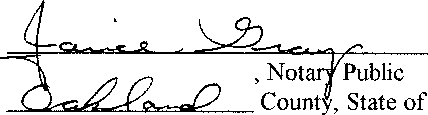 Janice Gray
, Notary Public
Oakland County, State of